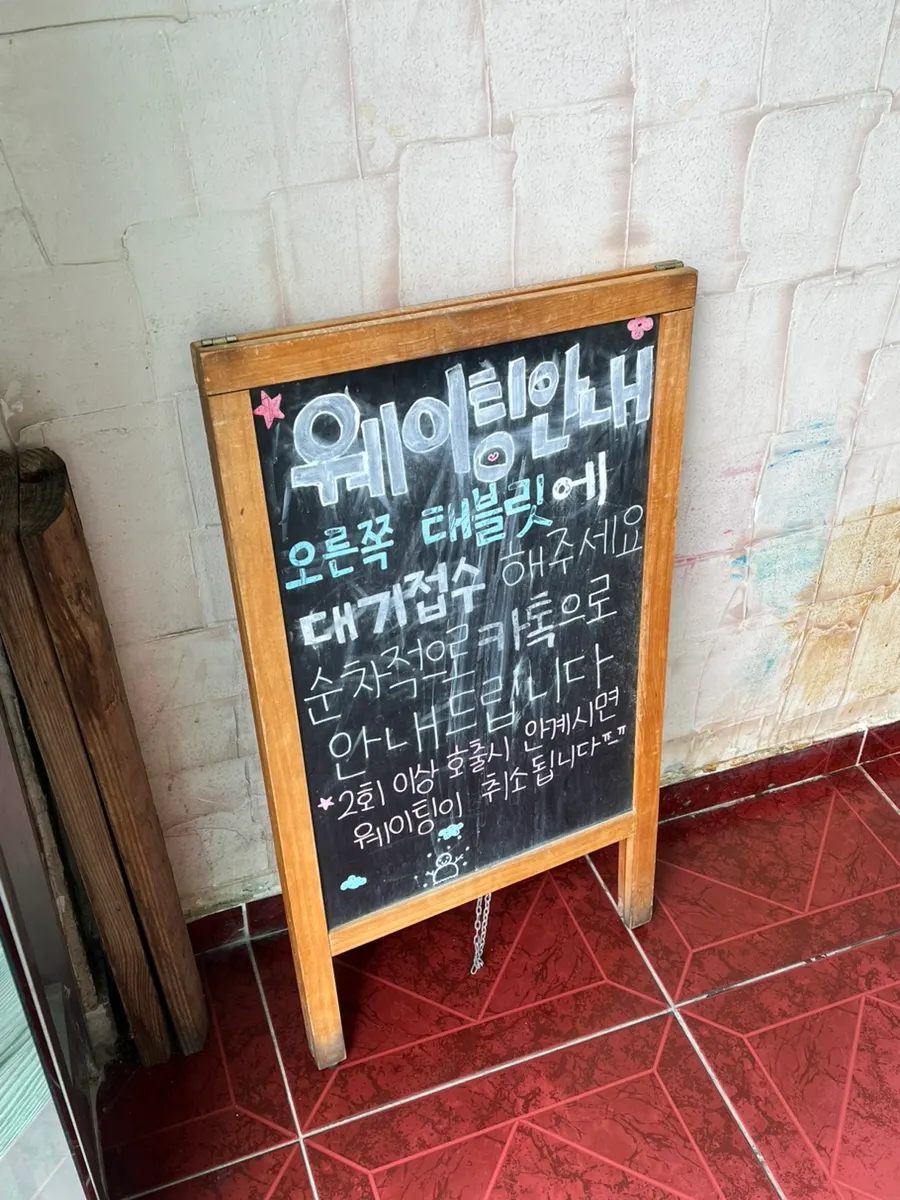 웨이팅안내
오른쪽 태블릿에
대기접수 해주세요
순차적으로 카톡으로
안내드립니다
2회 이상 호출시 안계시면
웨이팅이 취소됩니다ㅠㅠ